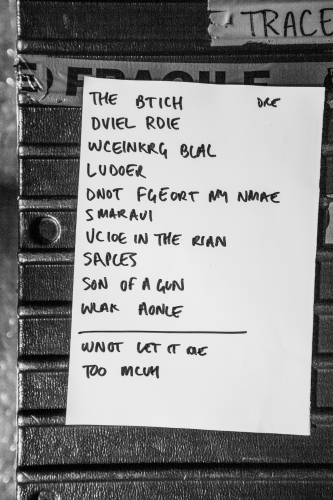 TRACE
FRAGILE
THE BTICH DRE
DVIEL RDIE
WCEINKRG BLAL
LUDOER
DNOT FGEORT MY NMAE
SMARAUI
VCIOE IN THE RIAN
SAPLES
SON OF A GUN
WLAK AONLE
WNOT LET IT
TOO MCUH